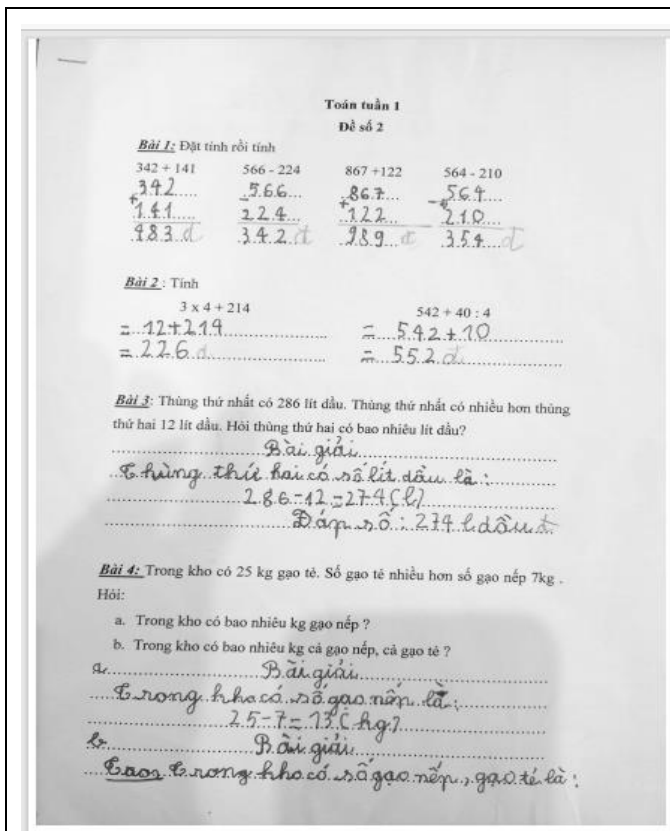 Toán tuần 1
Đề số 2
Bài 1: Đặt tính rồi tính
342 + 141 566 - 224 867 +122 564 - 210
342 566 867 564
+ - + -
141 224 122 210
483 đ 342 đ 989 đ 354 đ
Bài 2 : Tính
3 x 4 + 214 542 + 40 : 4
= 12+214 = 542+10
= 226 đ = 552 đ
Bài 3: Thùng thứ nhất có 286 lít dầu. Thùng thứ nhất có nhiều hơn thùng
thứ hai 12 lít dầu. Hỏi thùng thứ hai có bao nhiêu lít dầu?
Bài giải
Thùng thứ hai có số lít dầu là :
286-12=274(l)
Đáp số : 274 l dầu đ
Bài 4: Trong kho có 25 kg gạo tẻ. Số gạo tẻ nhiều hơn số gạo nếp 7kg .
Hỏi:
a. Trong kho có bao nhiêu kg gạo nếp ?
b. Trong kho có bao nhiêu kg cả gạo nếp, cả gạo tẻ ?
a Bài giải
Trong kho có số gạo nếp là :
25-7= 13(kg)
b Bài giải
Trong kho có số gạo nếp, gạo tẻ là :